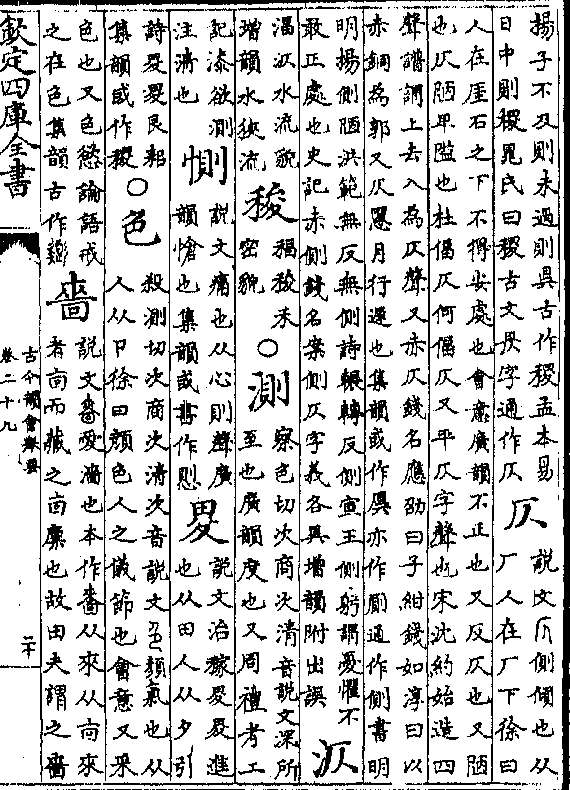 揚子不及則未過則昃古作稷孟本易
日中則稷晁氏曰稷古文昃字通作仄
仄
説文仄側傾也从
厂人在厂下徐曰
人在厓石之下不得安處也會意廣韻不正也又反仄也又陋
也仄陋卑隘也杜偈仄何偈仄又平仄字聲也宋沈約始造四
聲譜謂上去入為仄聲又赤仄錢名應劭曰子紺錢如淳曰以
赤銅為郭又仄慝月行遲也集韻或作亦作厠通作側書明
明揚側陋洪範無反無側詩輾轉反側宣王側躬謂憂懼不
敢正處也史記赤側錢名案側仄字義各異增韻附出誤
汄
汄水流貌
增韻水狹流
稄
稫稄禾
密貌
○測
察色切次商次清音説文深所
至也廣韻度也又周禮考工
記漆欲測
注清也
惻
説文痛也从心則聲廣
韻愴也集韻或書作㥽
畟
説文治稼畟畟進
也从田人从夂引
詩畟畟良耜
集韻或作稷
○色
殺測切次商次清次音説文色顔氣也从
人从卩徐曰顔色人之儀節也會意又采
色也又色慾論語戒
之在色集韻古作
嗇
説文嗇愛濇也本作嗇从來从㐭來
者㐭而藏之㐭廩也故田夫謂之嗇
欽定四庫全書
古今韻會舉要
卷二十九
二十